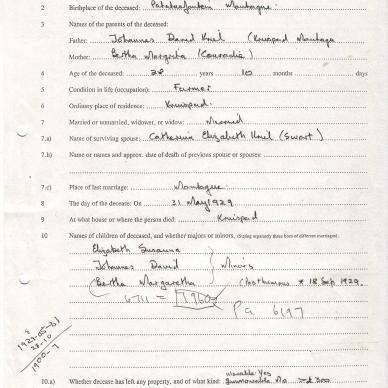 2 Birthplace of the deceased: Montague
3 Names of the parents of the deceased:
Father: Johannes David Knil (Kruispad Montagu
Mother: Bertha Margrita (Conradie)
4 Age of the deceased: 28 years 10 months days
5 Condition in life (occupation): Farmer
6 Ordinary place of residence: Kruispad.
7 Married or unmarried, widower, or widow: Married
7.a) Name of surviving spouse: Catherina Elizabeth Knil (Swart)
7.b) Name or names and approx. date of death of previous spouse or spouses:
7.c) Place of last marriage: Montague
8 The day of the decease: On 31 May 1929
9 At what house or where the person died: Kruispad
10 Names of children of deceased, and whether majors or minors. (Stating separately those born of different marriages).
Elizabeth Susanna
Johannes David } Minors
(Bertha Margaretha (Posthumus * 18 Sep 1929.
6711 = 1960
Pa 6197
1929-05-31
28-10
1900-7
10.a) Whether deceased has left any property, and of what kind: movable Yes
Immovable No